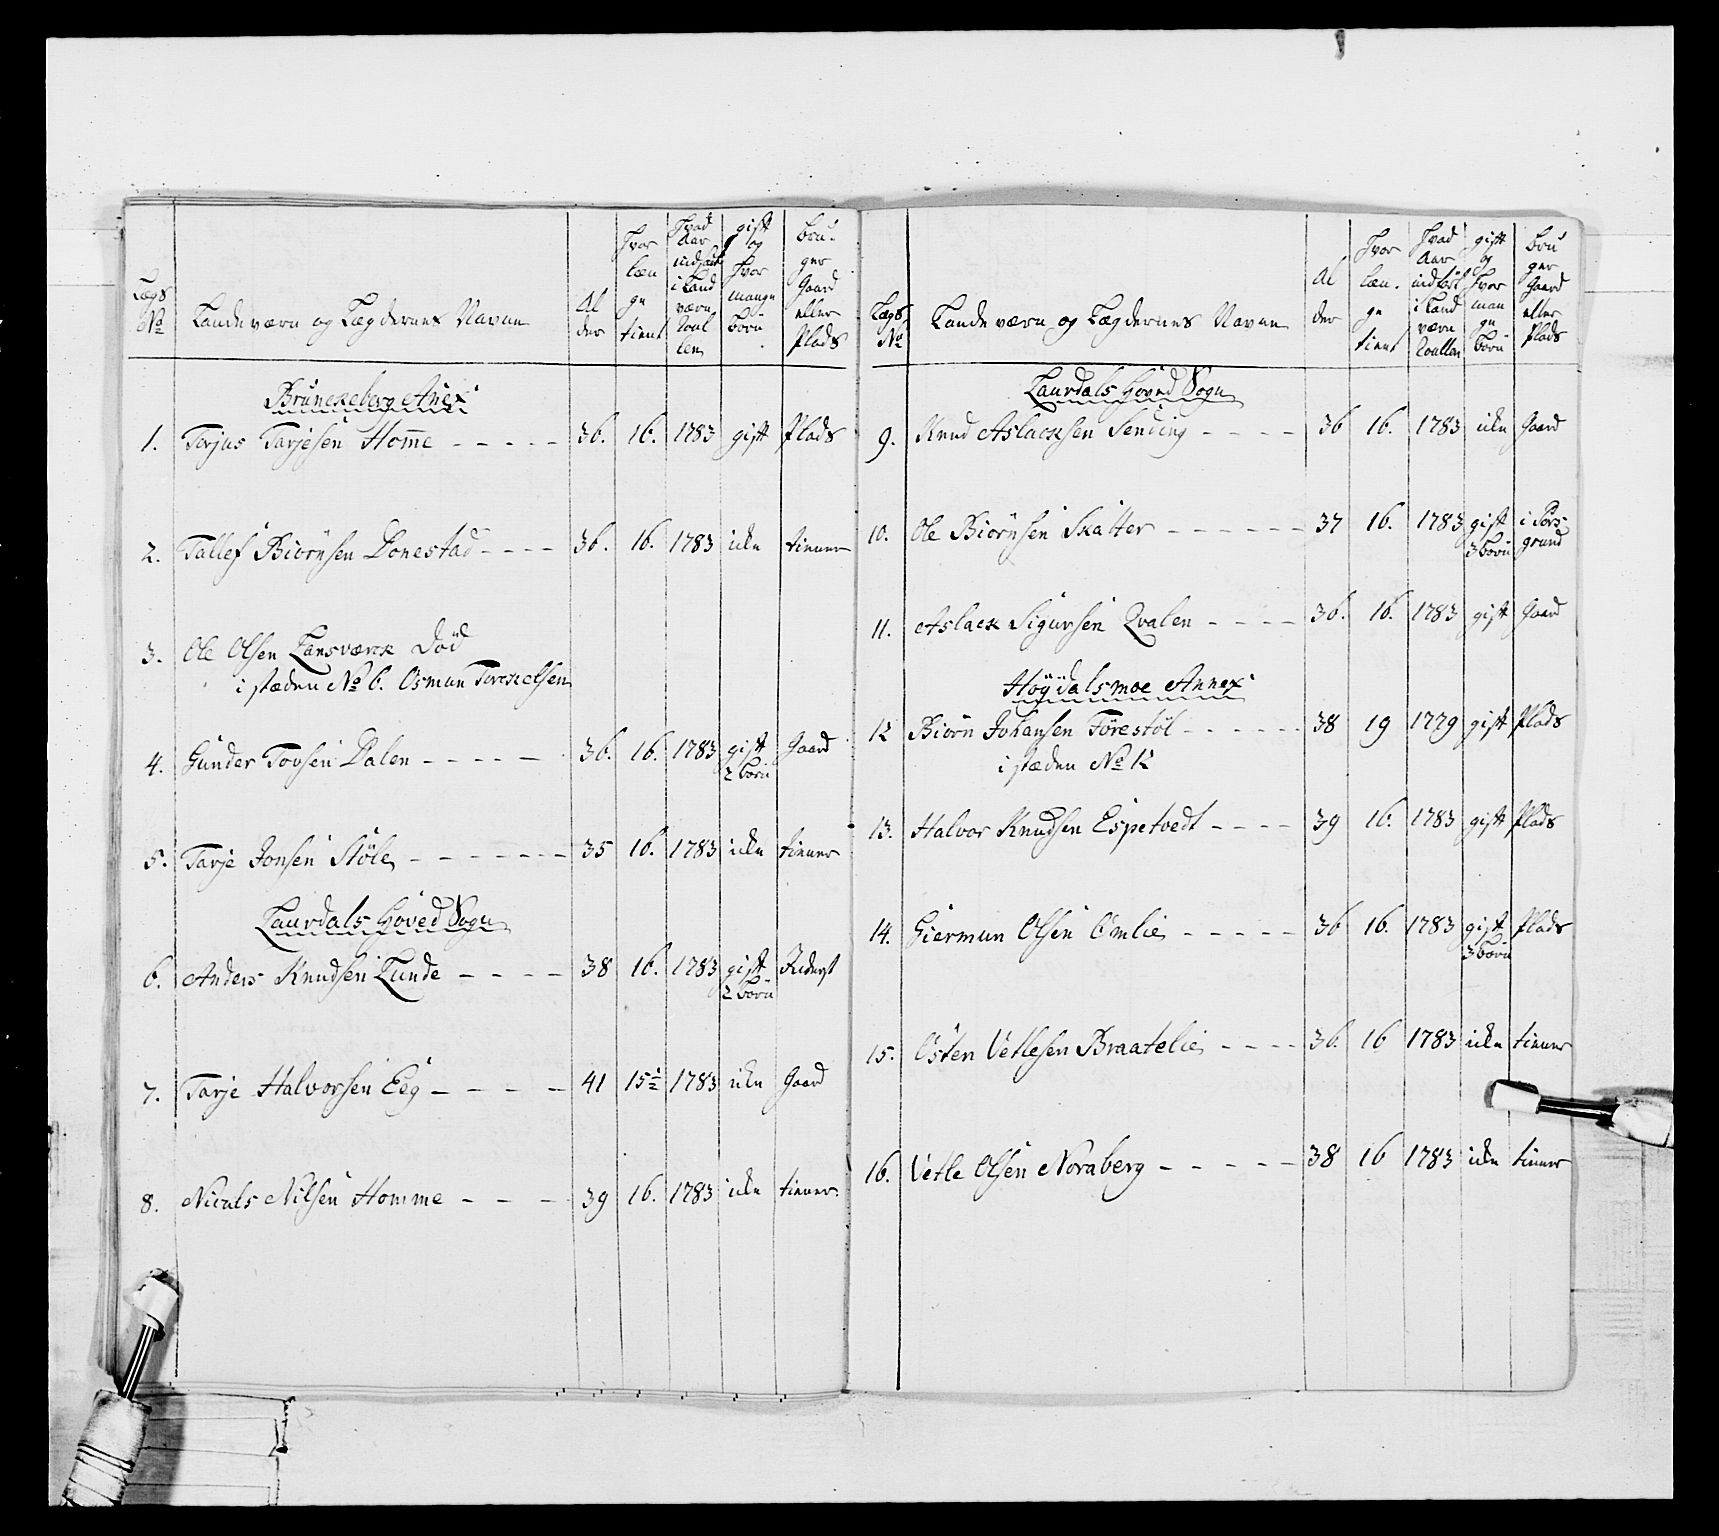 Lægs No | Landeværn og Lægdernes Navne | Al der | Hvor læn ge tient | Hvad Aar indført i Land værn Roul len | gift og Hvor mange børn | bru- ger Gaard eller Plads
Brunckeberg Anex
1. Torjus Tarjesen Hom̅e - - - - - 36. 16. 1783 gift Plads
2. Tallef Biörnsen Donestad - - - - 36. 16. 1783 icke tiener
3. Ole Olsen Lansværck Död
i stæden No 6. Osmun Torckelsen
4. Gunder Tovsen Dalen - - - - - 36. 16. 1783 gift Gaard
2 børn
5. Tarje Jonsen Støle - - - - - - - 35 16. 1783 icke tiener
Laurdals Hoved Sogn
6. Anders Knudsen Lunde - - - - 38 16. 1783 gift
2 børn
7. Tarje Halvorsen Eeg - - - - 41 15½ 1783 icke Gaard
8. Niculs Nilsen Homme - - - - 39 16. 1783 icke tiener.
Lægs No | Lande værn og Lægdernes Navne | Al der | Hvor læn. ge tient | Hvad Aar indført i Land værn Roullen | gift og Hvor man ge børn | bru ger Gaard eller Plads
Laurdals Hoved Sogn
9. Knud Aslacksen Sending - - - - 36 16. 1783 icke Gaard
10. Ole Biörnsen Skatter - - - - - - 37 16. 1783 gift i Pors-
3 børn grund
11. Aslack Sigursen Qvalen - - - - 36. 16. 1783 gift Gaard
Höydalsmoe Annex
12 Biörn Johansen Förestöl - - - - - - 38 19 1779 gift Plads
i stæden No 12
13. Halvor Knudsen Espetvedt - - - - 39 16. 1783 gift Plads
14. Giermun Olsen Omlie - - - - - 36 16. 1783 gift Plads
3 børn
15. Östen Vetlesen Braatelie - - - - 36. 16 1783 icke tiener
16. Vetle Olsen Noraberg - - - - - 38 16 1783 icke tiener